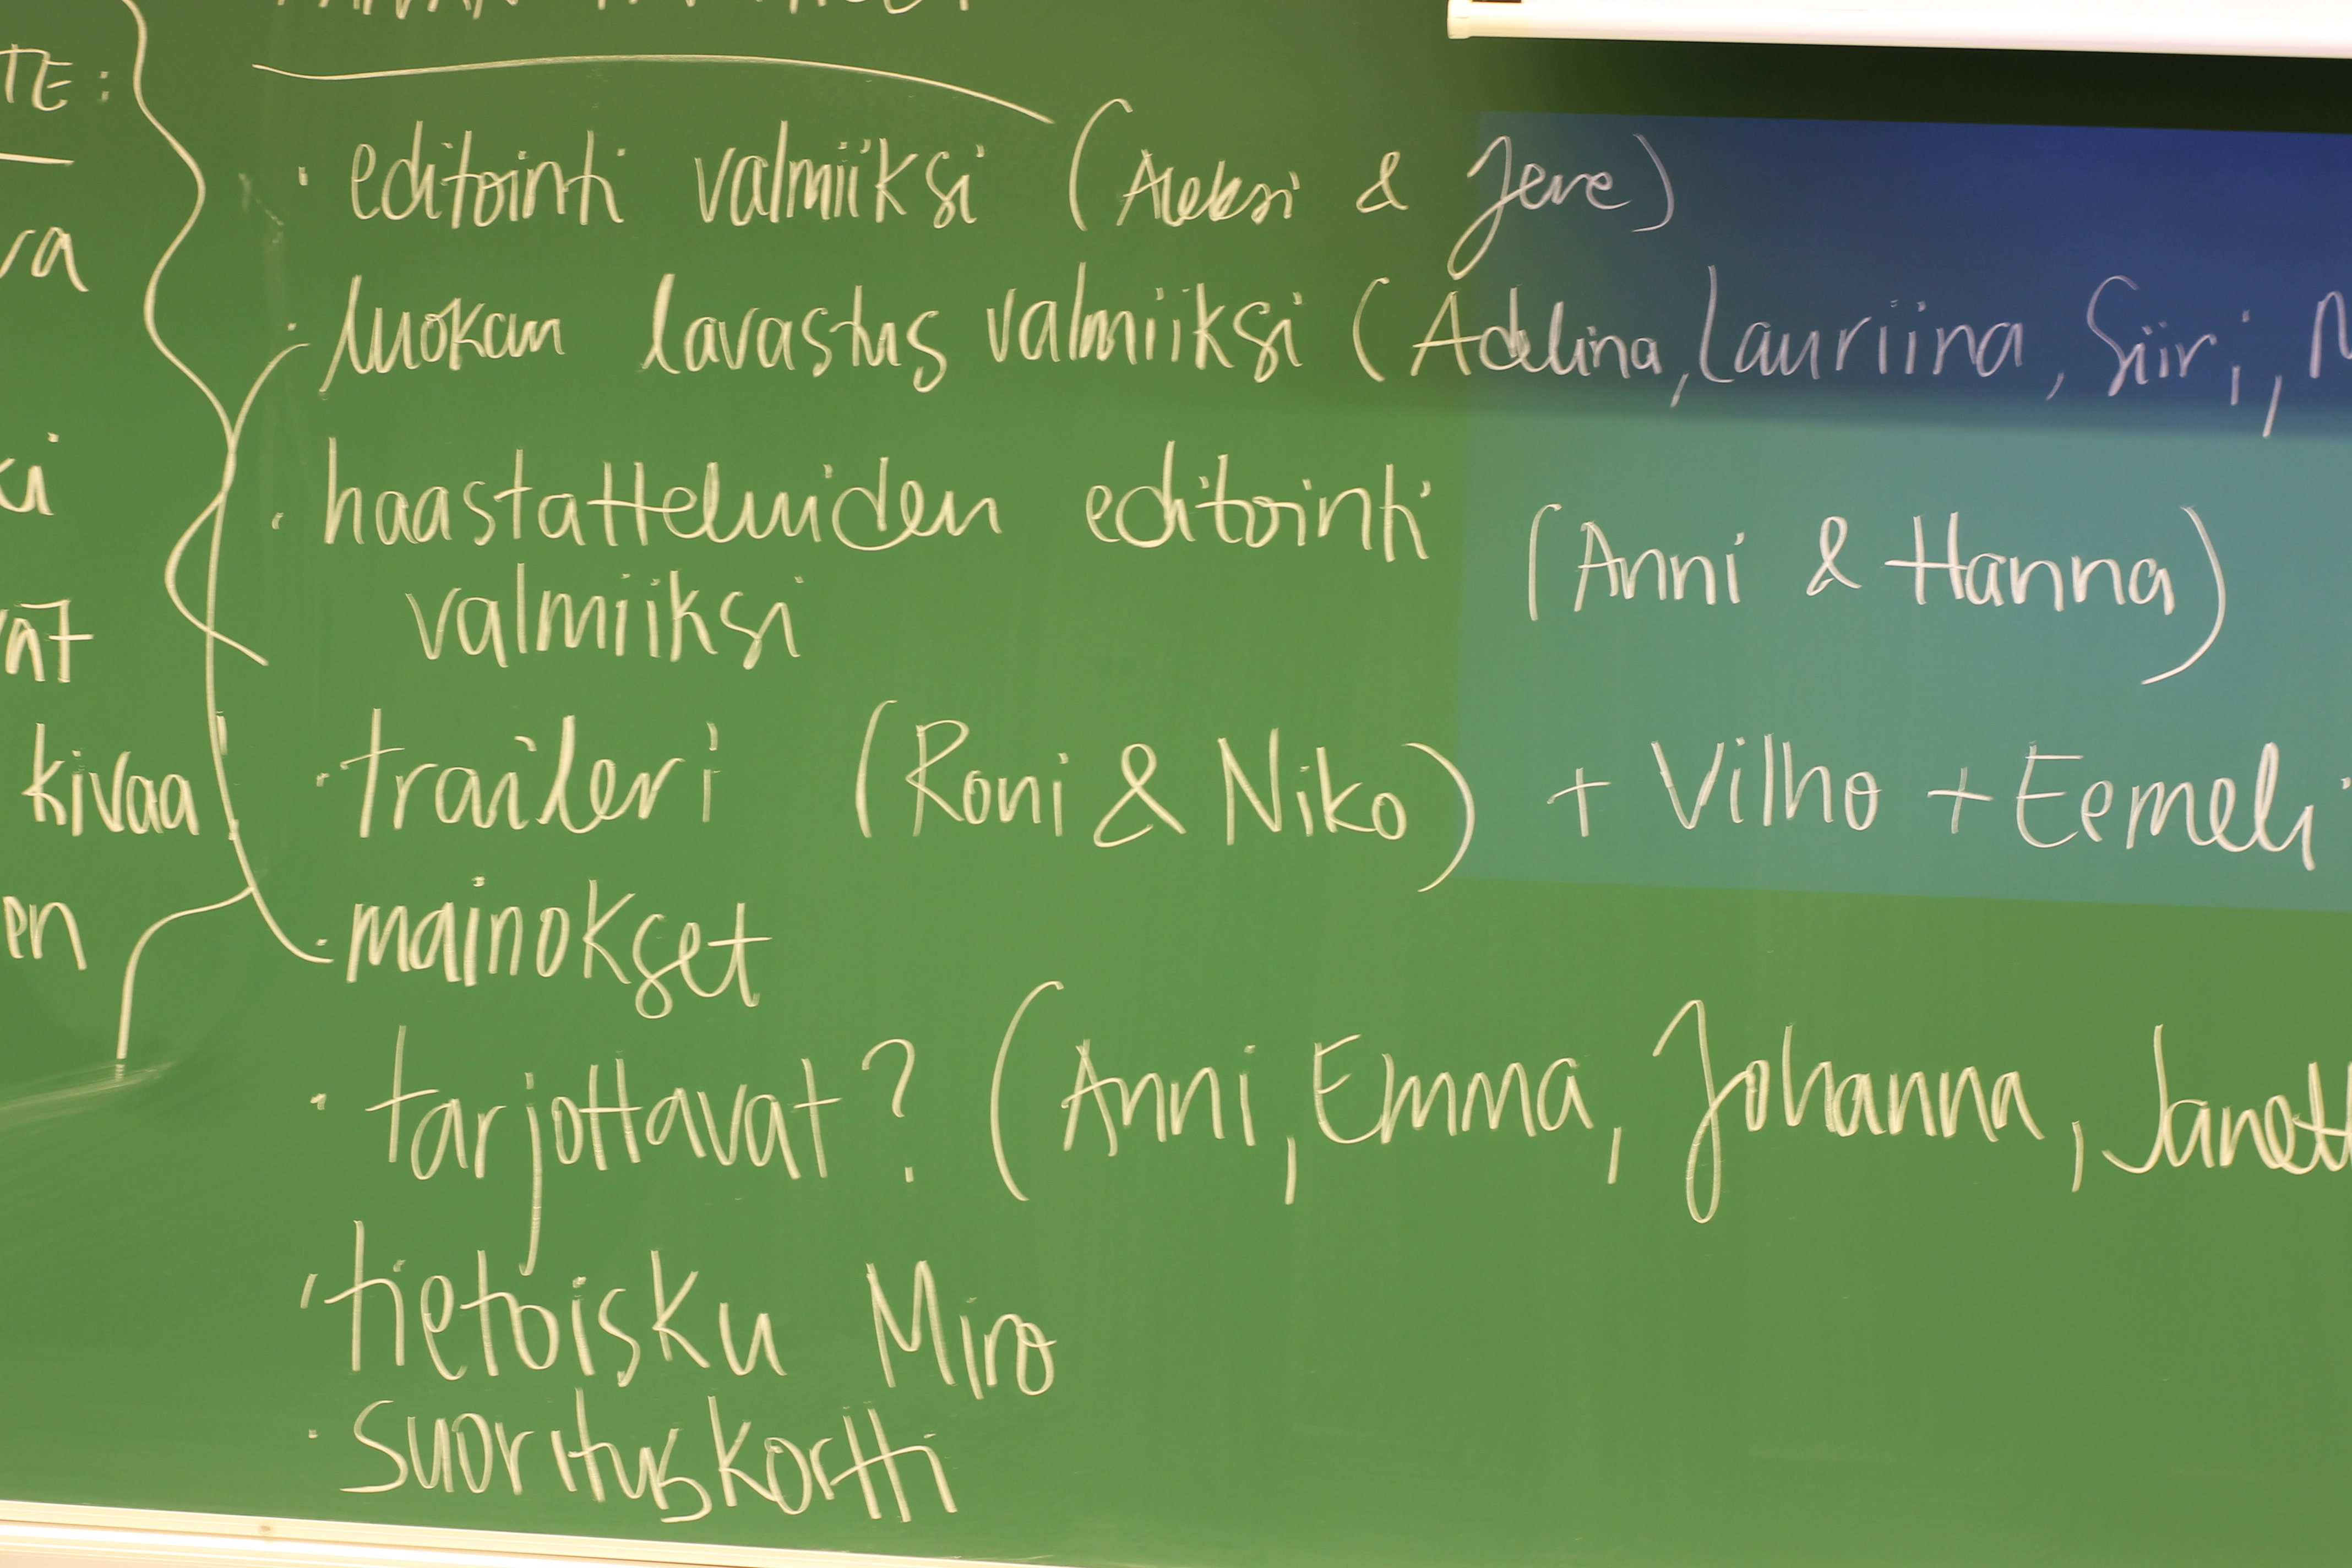 TE:
· editointi valmiiksi (Aleksi & Jere)
· luokan lavastus valmiiksi (Adelina, Lauriina, Siiri,
· haastatteluiden editointi (Anni & Hanna)
valmiiksi
kivaa
· traileri (Roni & Niko) + Vilho + Eemeli
· mainokset
· tarjottavat? (Anni, Emma, Johanna, Janett
· tietoisku Miro
· suorituskortti